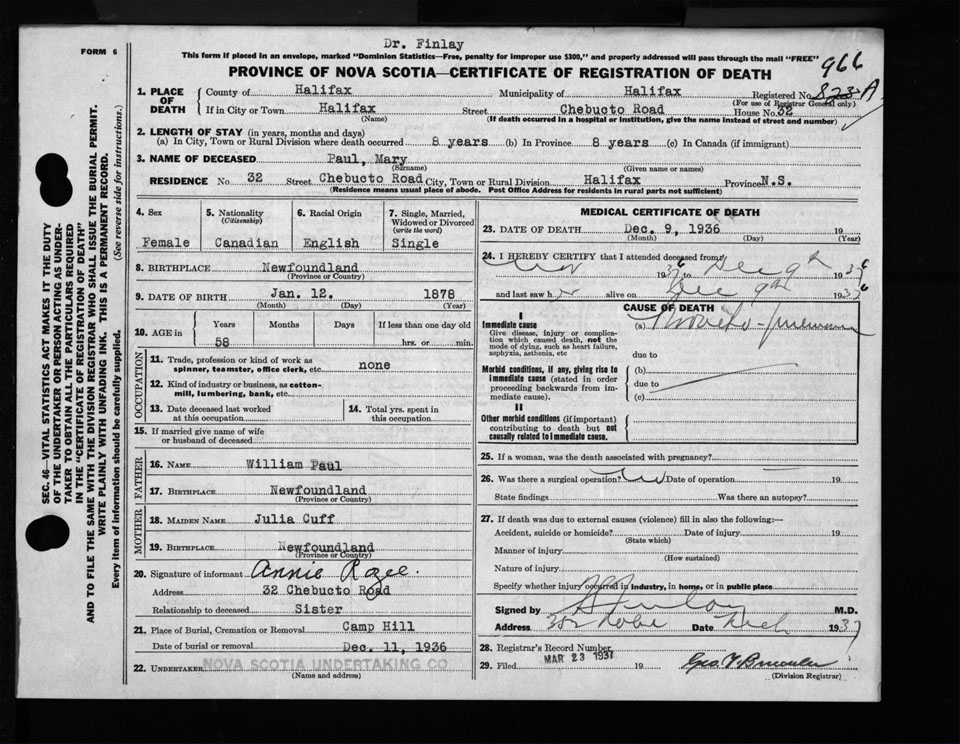 Dr. Finlay
FORM 6
This form if placed in an envelope, marked "Dominion Statistics—Free, penalty for improper use $300," and properly addressed will pass through the mail "FREE"
966
PROVINCE OF NOVA SCOTIA—CERTIFICATE OF REGISTRATION OF DEATH
823 A
1. PLACE OF DEATH
County of Halifax Municipality of Halifax Registered No.
(For use of Registrar General only)
If in City or Town Halifax Street Chebucto Road House No. 32
(Name) (If death occurred in a hospital or institution, give the name instead of street and number)
2. LENGTH OF STAY (in years, months and days)
(a) In City, Town or Rural Division where death occurred 8 years (b) In Province 8 years (c) In Canada (if immigrant)
3. NAME OF DECEASED Paul, Mary
(Surname) (Given name or names)
RESIDENCE No. 32 Street Chebucto Road City, Town or Rural Division Halifax Province N.S.
(Residence means usual place of abode. Post Office Address for residents in rural parts not sufficient)
SEC. 46—VITAL STATISTICS ACT MAKES IT THE DUTY
OF THE UNDERTAKER OR PERSON ACTING AS UNDER-
TAKER TO OBTAIN ALL THE PARTICULARS REQUIRED
IN THE "CERTIFICATE OF REGISTRATION OF DEATH"
AND TO FILE THE SAME WITH THE DIVISION REGISTRAR WHO SHALL ISSUE THE BURIAL PERMIT.
WRITE PLAINLY WITH UNFADING INK. THIS IS A PERMANENT RECORD.
Every item of information should be carefully supplied. (See reverse side for instructions.)
4. Sex
Female
5. Nationality
(Citizenship)
Canadian
6. Racial Origin
English
7. Single, Married,
Widowed or Divorced
(write the word)
Single
8. BIRTHPLACE Newfoundland
(Province or Country)
9. DATE OF BIRTH Jan. 12. 1878
(Month) (Day) (Year)
10. AGE in
Years Months Days If less than one day old
58 hrs. or min.
OCCUPATION
11. Trade, profession or kind of work as
spinner, teamster, office clerk, etc. none
12. Kind of industry or business, as cotton-
mill, lumbering, bank, etc.
13. Date deceased last worked
at this occupation
14. Total yrs. spent in
this occupation
15. If married give name of wife
or husband of deceased
FATHER
16. NAME William Paul
17. BIRTHPLACE Newfoundland
(Province or Country)
MOTHER
18. MAIDEN NAME Julia Cuff
19. BIRTHPLACE Newfoundland
(Province or Country)
20. Signature of informant Annie Rozee.
Address 32 Chebucto Road
Relationship to deceased Sister
21. Place of Burial, Cremation or Removal Camp Hill
Date of burial or removal Dec. 11, 1936
22. UNDERTAKER NOVA SCOTIA UNDERTAKING CO.
(Name and address)
MEDICAL CERTIFICATE OF DEATH
23. DATE OF DEATH Dec. 9, 1936 19
(Month) (Day) (Year)
24. I HEREBY CERTIFY that I attended deceased from
Nov 1936 to Dec 9th 1936
and last saw h alive on Dec 9th 1936
CAUSE OF DEATH
I
Immediate cause
Give disease, injury or complica-
tion which caused death, not the
mode of dying, such as heart failure,
asphyxia, asthenia, etc
(a)
due to
Morbid conditions, if any, giving rise to
immediate cause (stated in order
proceeding backwards from im-
mediate cause).
(b)
due to
(c)
II
Other morbid conditions (if important)
contributing to death but not
causally related to immediate cause.
25. If a woman, was the death associated with pregnancy?
26. Was there a surgical operation? No Date of operation 19
State findings Was there an autopsy?
27. If death was due to external causes (violence) fill in also the following:—
Accident, suicide or homicide? Date of injury 19
(State which)
Manner of injury
(How sustained)
Nature of injury
Specify whether injury occurred in industry, in home, or in public place
Signed by Finlay M.D.
Address 382 Robie Date 1937
28. Registrar's Record Number
29. Filed MAR 23 1937 19
(Division Registrar)